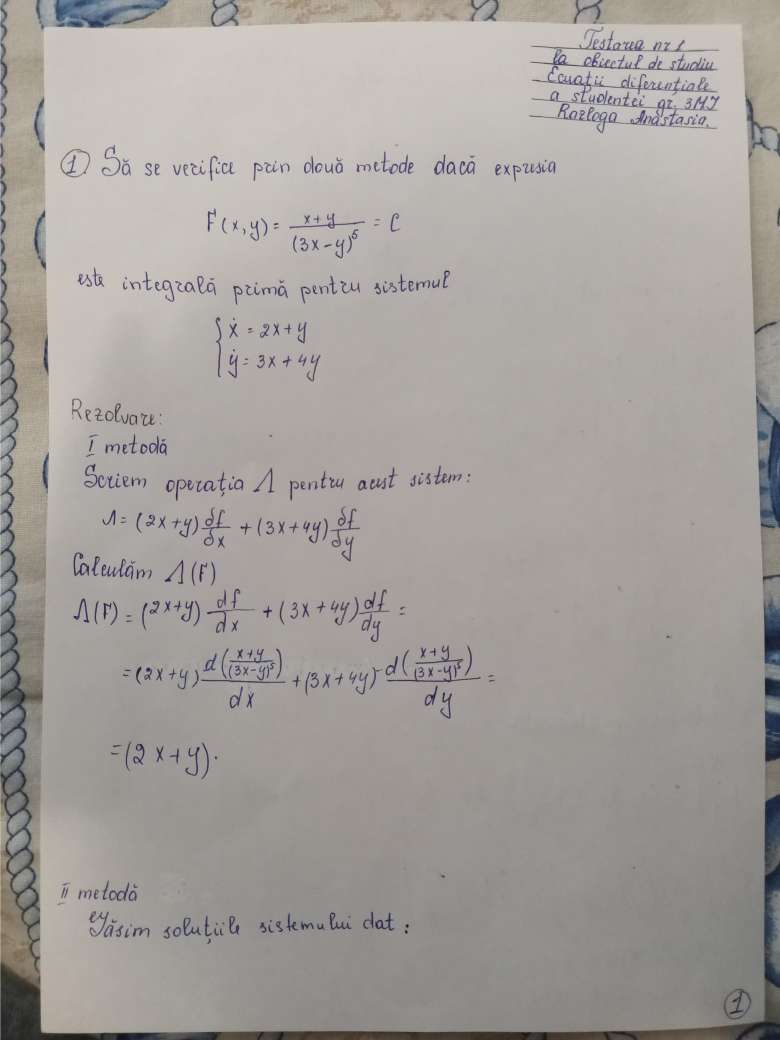 Testarea nr 1
la obiectul de studiu
Ecuații diferențiale
a studentei gr. 3MI
Razloga Anastasia.
① Să se verifice prin două metode dacă expresia
F(x,y) = \frac{x+y}{(3x-y)^5} = C
este integrală primă pentru sistemul
{ ẋ = 2x+y
{ ẏ = 3x+4y
Rezolvare:
I metodă
Scriem operația Λ pentru acest sistem:
Λ = (2x+y) \frac{δf}{δx} + (3x+4y) \frac{δf}{δy}
Calculăm Λ(F)
Λ(F) = (2x+y) \frac{df}{dx} + (3x+4y) \frac{df}{dy} =
= (2x+y) \frac{d(\frac{x+y}{(3x-y)^5})}{dx} + (3x+4y) · \frac{d(\frac{x+y}{(3x-y)^5})}{dy} =
= (2x+y) ·
II metodă
Găsim soluțiile sistemului dat:
①